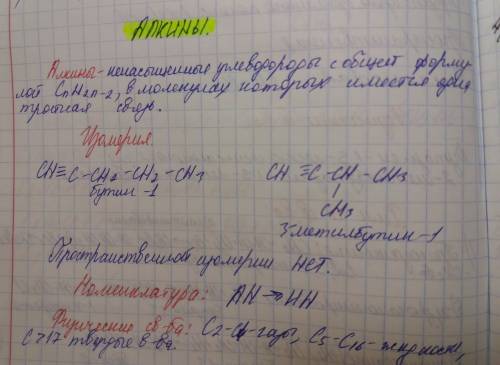 Алкины.
Алкины - ненасыщенные углеводороды с общей форму
лой CnH2n-2, в молекулах которых имеется одна
тройная связь.
Изомерия.
CH≡C-CH2-CH2-CH3 CH≡C-CH-CH3
бутин-1 CH3
3-метилбутин-1
Пространственной изомерии нет.
Номенклатура: АН→ИН
Физические св-ва: C2-C4 газы, C5-C16-жидкости,
C>17 твердые в-ва.